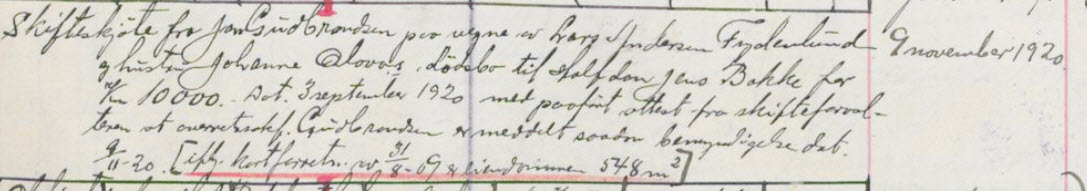 Skifteskjöte fra Jon Gudbrandsen paa vegne av Lars Andersen Frydenlund 9 november 1920.
og hustru Johanne Olovas dödsbo til Halfdan Jens Bakke for
Kr 10000.- Dat. 3 september 1920 med paaført attest fra skifteforval-
teren at overretssakf. Gudbrandsen er meddelt saadan bemyndigelse dat.
9/11-20. [iflg. kartforretn. av 31/8-09 er eiendommen 548 m²]